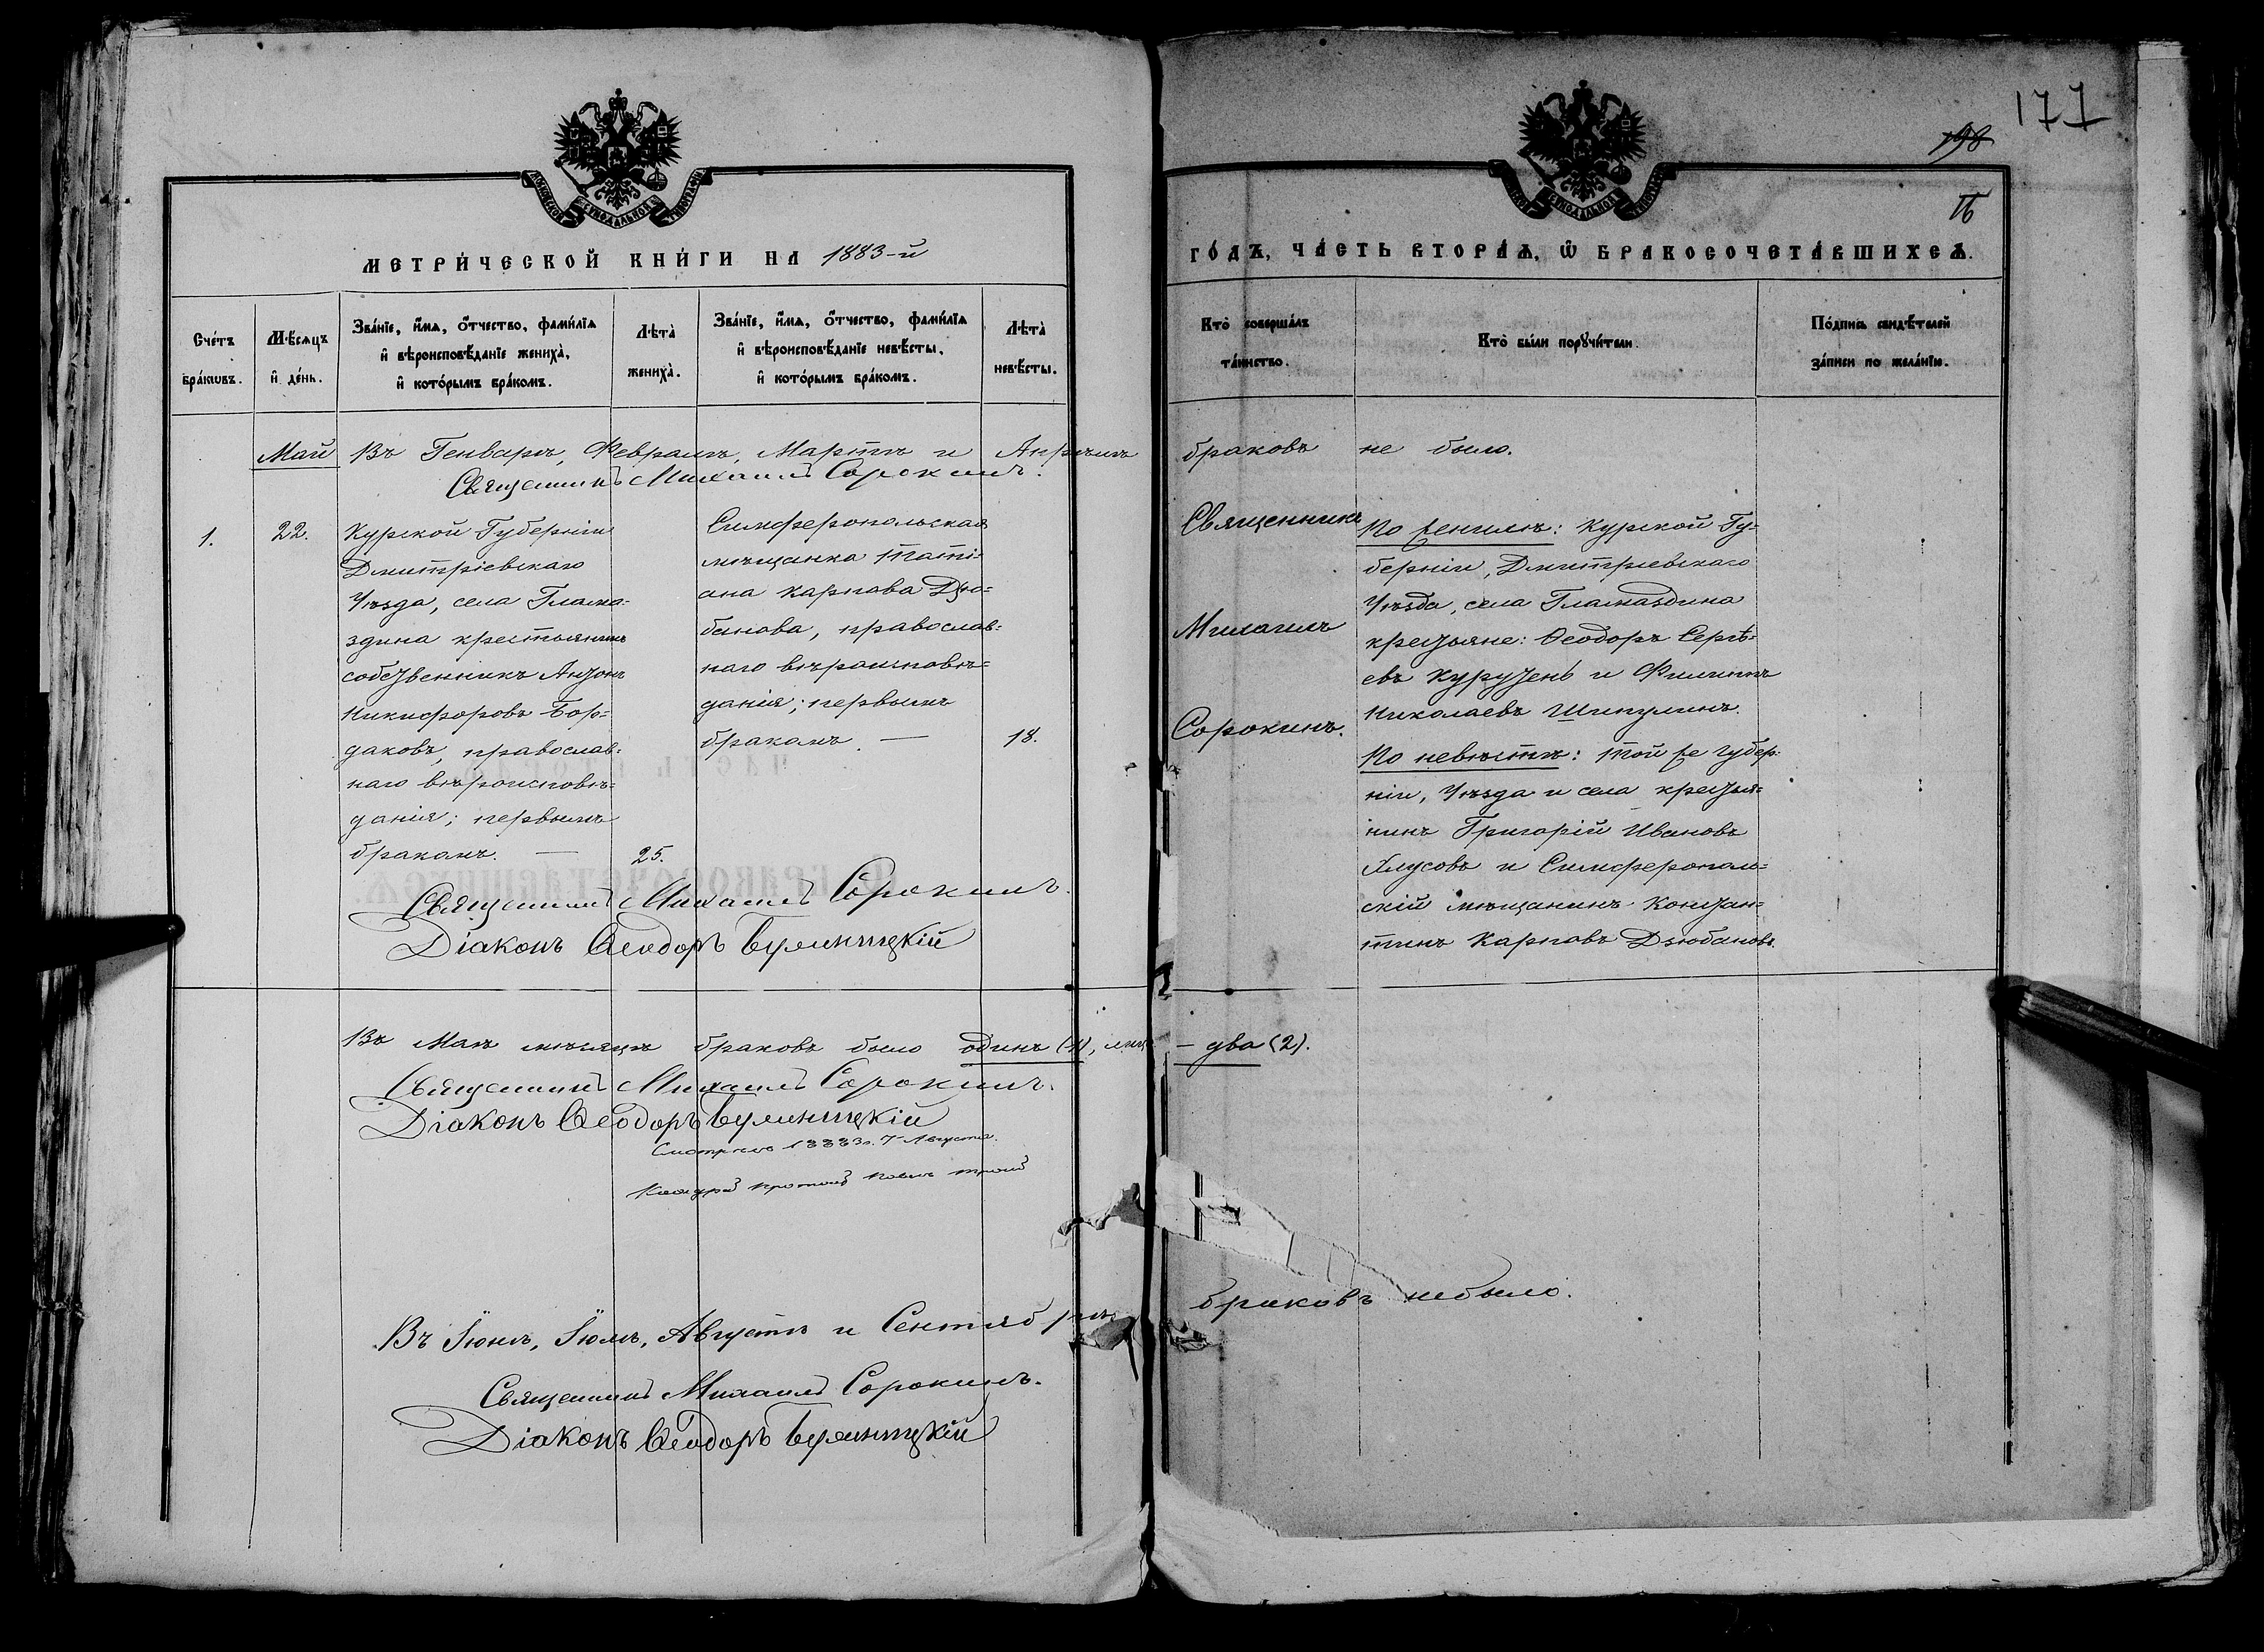 177
198
16
МОСКОВСКОЙ СѴНОДАЛЬНОЙ ТИПОГРАФІИ
МОСКОВСКОЙ СѴНОДАЛЬНОЙ ТИПОГРАФІИ
МЕТРИ́ЧЕСКОЙ КНИ́ГИ НА 1883-й
ГО́ДЪ, ЧА́СТЬ ВТОРА́Ѧ, Ѽ БРАКОСОЧЕТА́ВШИХСѦ.
Сче́тъ
бра́кѡвъ.
Мѣ́сѧцъ
и҆ де́нь.
Зва́нїе, и҆́мѧ, ѻ҆́тчество, фами́лїѧ
и҆ вѣроисповѣ́данїе жениха̀,
и҆ кото́рымъ бра́комъ.
Лѣта̀
жениха̀.
Зва́нїе, и҆́мѧ, ѻ҆́тчество, фами́лїѧ
и҆ вѣроисповѣ́данїе невѣ́сты,
и҆ кото́рымъ бра́комъ.
Лѣта̀
невѣ́сты.
Кто̀ соверша́лъ
та́инство.
Кто̀ бы́ли порꙋчи́тели.
По́дпись свидѣ́телей
за́писи по жела́нїю.
Май
Въ Генварѣ, Февралѣ, Мартѣ и Апрѣлѣ браковъ не было.
Священникъ Михаилъ Сорокинъ.
1.
22.
Курской Губерніи
Дмитріевскаго
Уѣзда, села Глама-
здина крестьянинъ
собственникъ Антонъ
Никифоровъ Бор-
даковъ, православ-
наго вѣроисповѣ-
данія; первымъ
бракомъ. —
25.
Симферопольская
мѣщанка Тати-
ана Карпова Дзю-
банова, православ-
наго вѣроисповѣ-
данія; первымъ
бракомъ. —
18.
Священникъ
Михаилъ
Сорокинъ.
По женихѣ: Курской Гу-
берніи, Дмитріевскаго
Уѣзда, села Гламаздина
крестьяне: Ѳеодоръ Сергѣ-
евъ и Филиппъ
Николаевъ Шипулинъ.
По невѣстѣ: той же губер-
ніи, Уѣзда и села крестья-
нинъ Григорій Ивановъ
и Симферополь-
скій мѣщанинъ Констан-
тинъ Карповъ Дзюбановъ.
Священникъ Михаилъ Сорокинъ.
Діаконъ Ѳеодоръ
Въ Маѣ мѣсяцѣ браковъ было одинъ (1), лицъ – два (2).
Священникъ Михаилъ Сорокинъ.
Діаконъ Ѳеодоръ
Августа
Въ Іюнѣ, Іюлѣ, Августѣ и Сентябрѣ браковъ небыло.
Священникъ Михаилъ Сорокинъ.
Діаконъ Ѳеодоръ